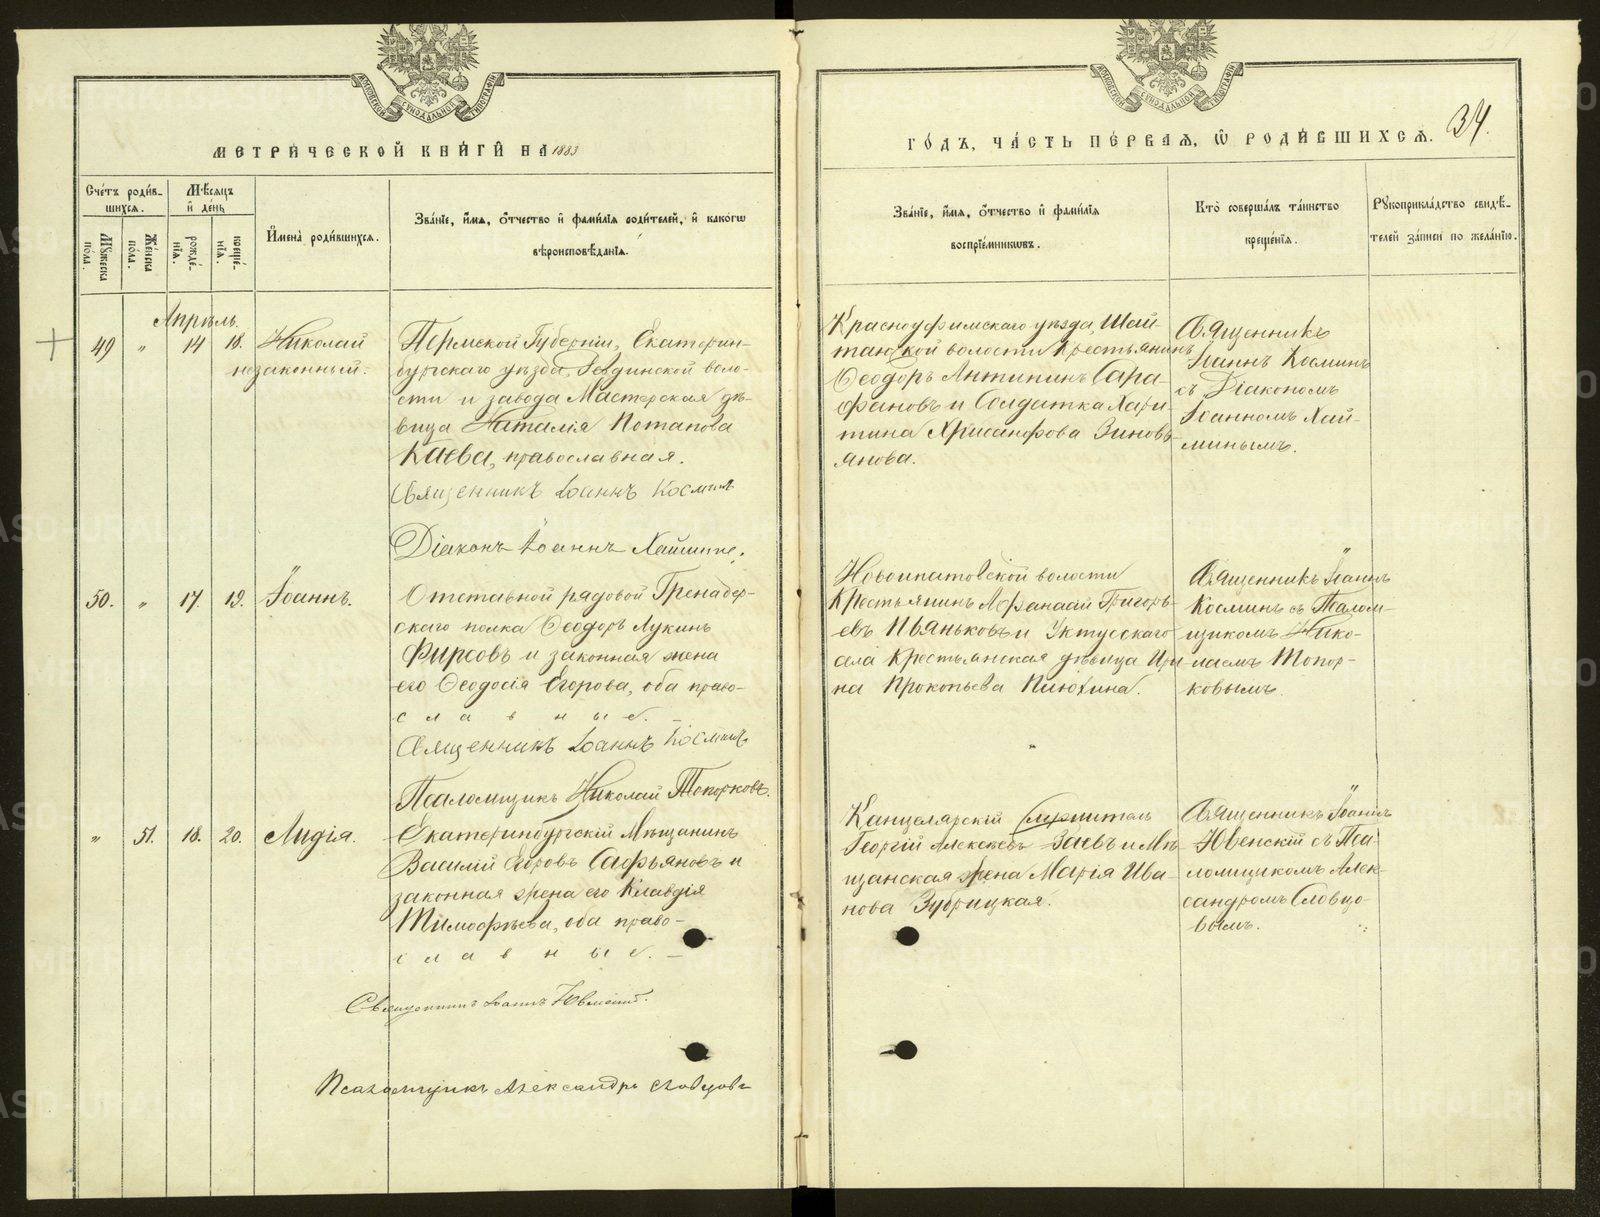 МЕТРИ́ЧЕСКОЙ КНИ́ГИ НА 1883
Сче́тъ роди́в-
шихся.
Мѣ́сяцъ
и҆ де́нь
Му́жеска
по́ла.
Же́нска
по́ла.
рожде́-
нїя.
креще́-
нїя.
И҆мена̀ роди́вшихся.
Зва́нїе, и҆́мя, ѻ҆́тчество и҆ фами́лїя роди́телей, и҆ како́гѡ
вѣроисповѣ́данїя.
Апрѣль.
49 " 14 18. Николай
незаконный.
Пермской Губерніи, Екатерин-
бургскаго уѣзда, Ревдинской воло-
сти и завода Мастерская дѣ-
вица Наталія Потапова
Каева, православная.
Священникъ Іоаннъ Косминъ
Діаконъ Іоаннъ Хайминъ.
50. " 17. 19. Іоаннъ.
Отставной рядовой Гренадер-
скаго полка Ѳеодоръ Лукинъ
Фирсовъ и законная жена
его Ѳеодосія Егорова, оба право-
славные.
Священникъ Іоаннъ Косминъ
Псаломщикъ Николай Топорковъ.
" 51. 18. 20. Лидія.
Екатеринбургскій Мѣщанинъ
Василій Егоровъ Сафьяновъ и
законная жена его Клавдія
Тимофѣева, оба право-
славные.
Священникъ Іоаннъ Ювенскій.
Псаломщикъ Александръ Словцовъ
ГО́ДЪ, ЧА́СТЬ ПЕ́РВАЯ, Ѡ҆ РОДИ́ВШИХСЯ.
34.
Зва́нїе, и҆́мя, ѻ҆́тчество и҆ фами́лїя
воспрїе́мникѡвъ.
Кто̀ соверша́лъ та́инство
креще́нїя.
Рꙋкоприкла́дство свидѣ́-
телей за́писи по жела́нїю.
Красноуфимскаго уѣзда, Шай-
танской волости Крестьянинъ
Ѳеодоръ Антипинъ Сара-
фановъ и Солдатка Хари-
тина Хрисанфова Зиновь-
янова.
Священникъ
Іоаннъ Косминъ
съ Діакономъ
Іоанномъ Хай-
минымъ.
Новоипатовской волости
Крестьянинъ Афанасій Григорь-
евъ Пьянковъ и Уктусскаго
села Крестьянская дѣвица Ири-
на Прокопьева Плюхина.
Священникъ Іоаннъ
Косминъ съ Псалом-
щикомъ Нико-
лаемъ Топор-
ковымъ.
Канцелярскій Служитель
Георгій Алексѣевъ Заевъ и Мѣ-
щанская жена Марія Ива-
нова Зубрицкая.
Священникъ Іоаннъ
Ювенскій съ Пса-
ломщикомъ Алек-
сандромъ Словцо-
вымъ.